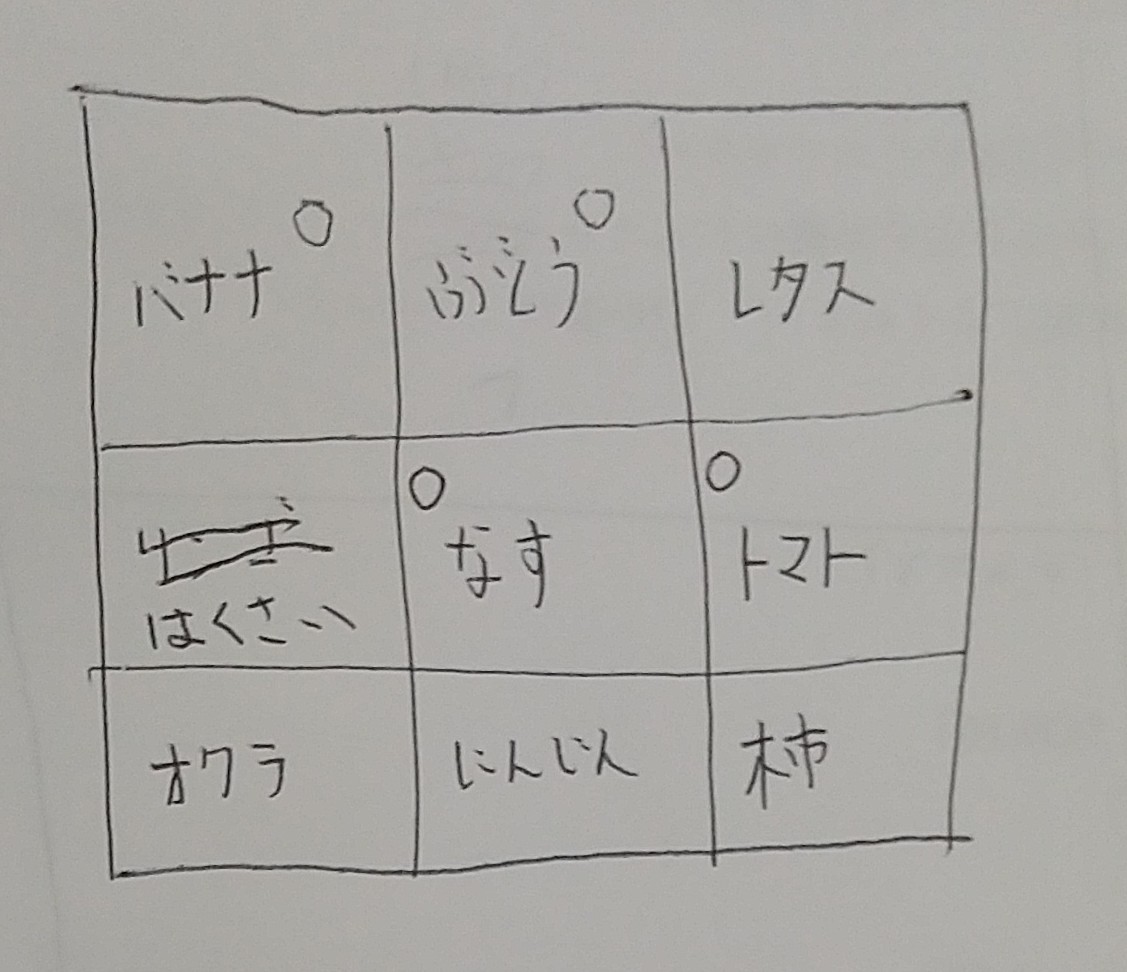 バナナ ○
ぶどう ○
レタス
はくさい
○ なす
○ トマト
オクラ
にんじん
柿